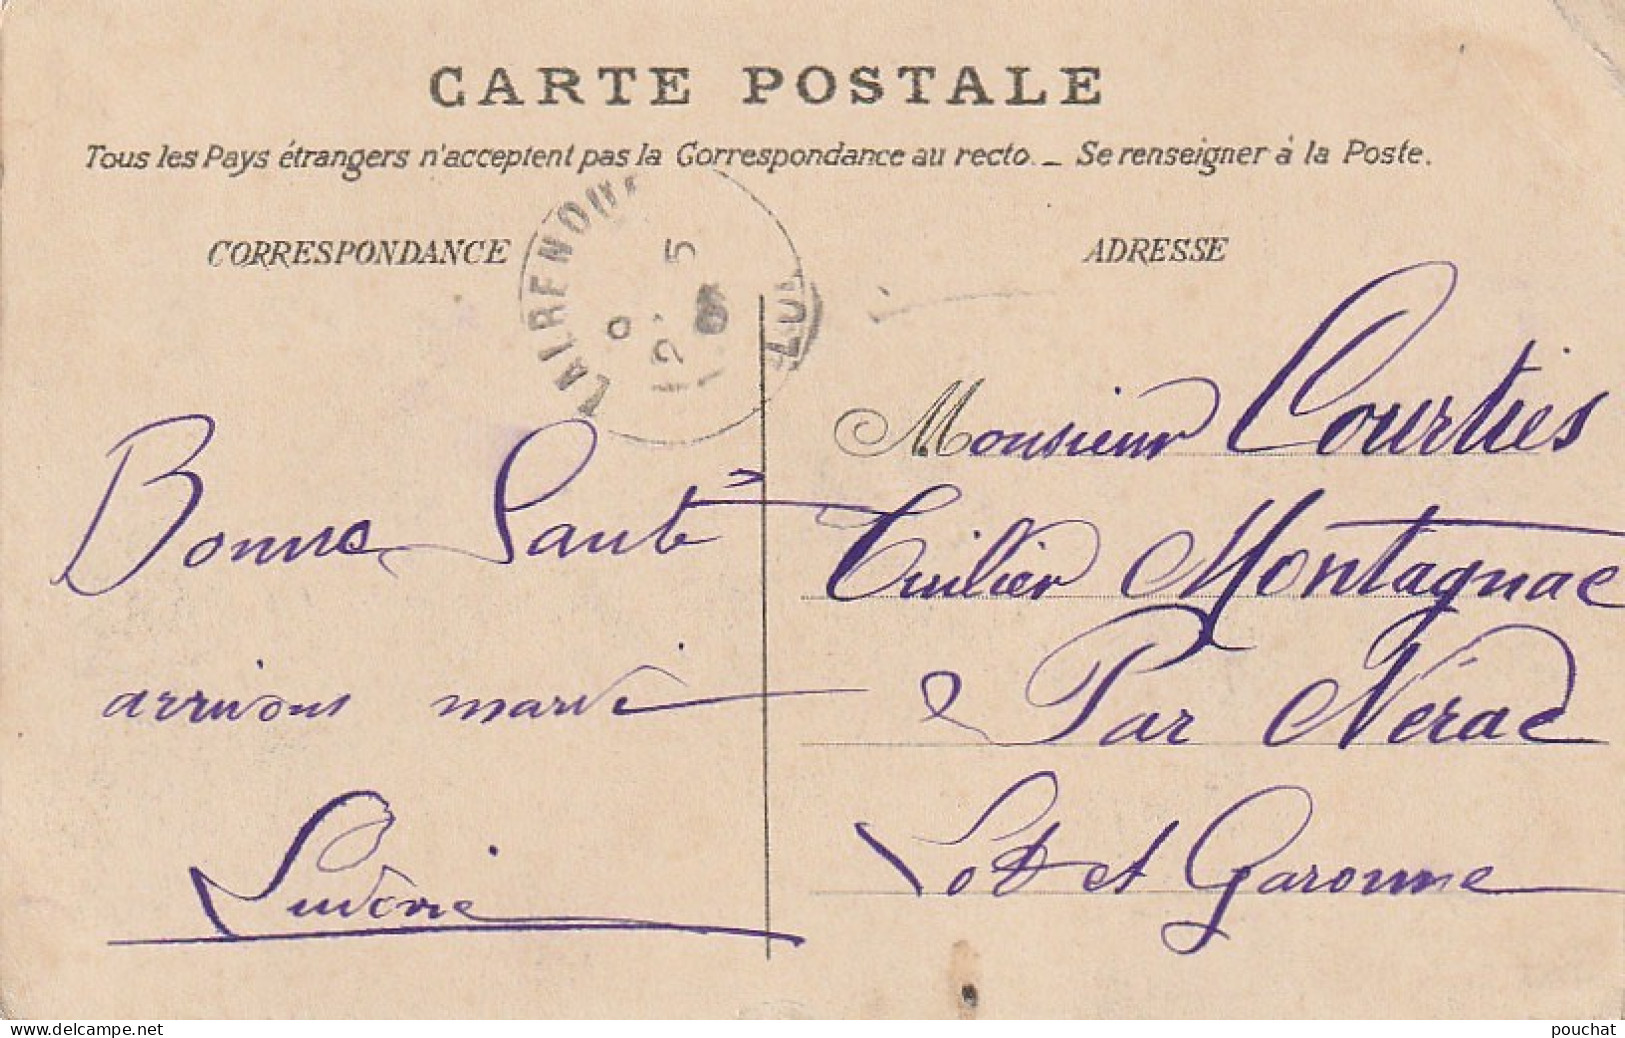 CARTE POSTALE
Tous les Pays étrangers n'acceptent pas la Correspondance au recto. _ Se renseigner à la Poste.
CORRESPONDANCE
ADRESSE
LALRENQUE
LOT
5
9
12
Bonne Santé
arrivons mardi
Monsieur Courties
Tuilier Montagnac
Par Nérac
Lot et Garonne
delcampe.net
pouchat